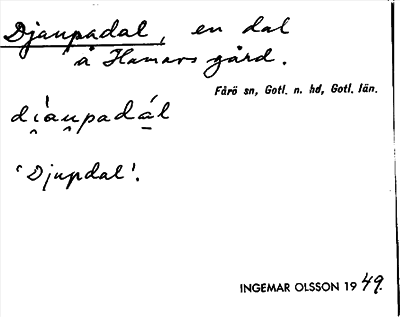 Djaupadal, en dal
å Hamars gård.
Fårö sn, Gotl. n. hd, Gotl. län.
di̯àu̯padá̲l
'Djupdal'.
INGEMAR OLSSON 1949.